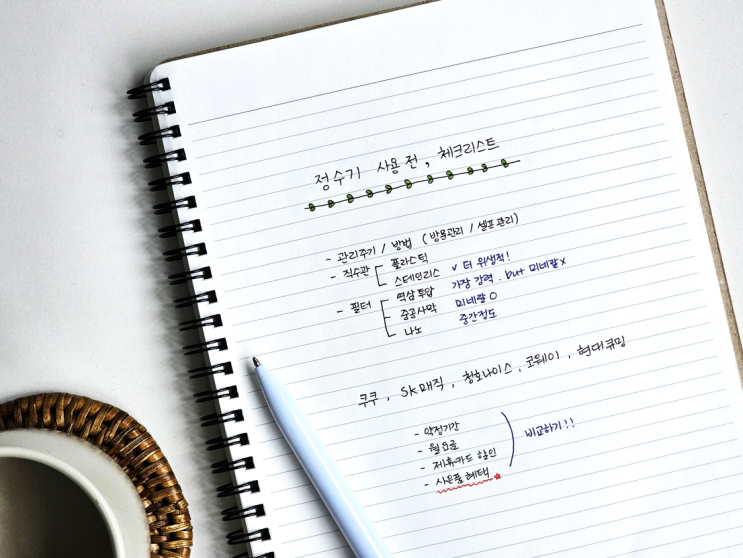 정수기 사용 전, 체크리스트
- 관리주기 / 방법 (방용관리 / 셀프관리)
- 직수관 플라스틱
스테인리스 v 더 위생적!
- 필터 역삼투압 가장 강력. but 미네랄 x
중공사막 미네랄 O
나노 중간정도
쿠쿠, SK매직, 청호나이스, 코웨이, 현대큐밍
- 약정기간
- 월요금
- 제휴카드 할인
- 사은품 혜택
비교하기!!